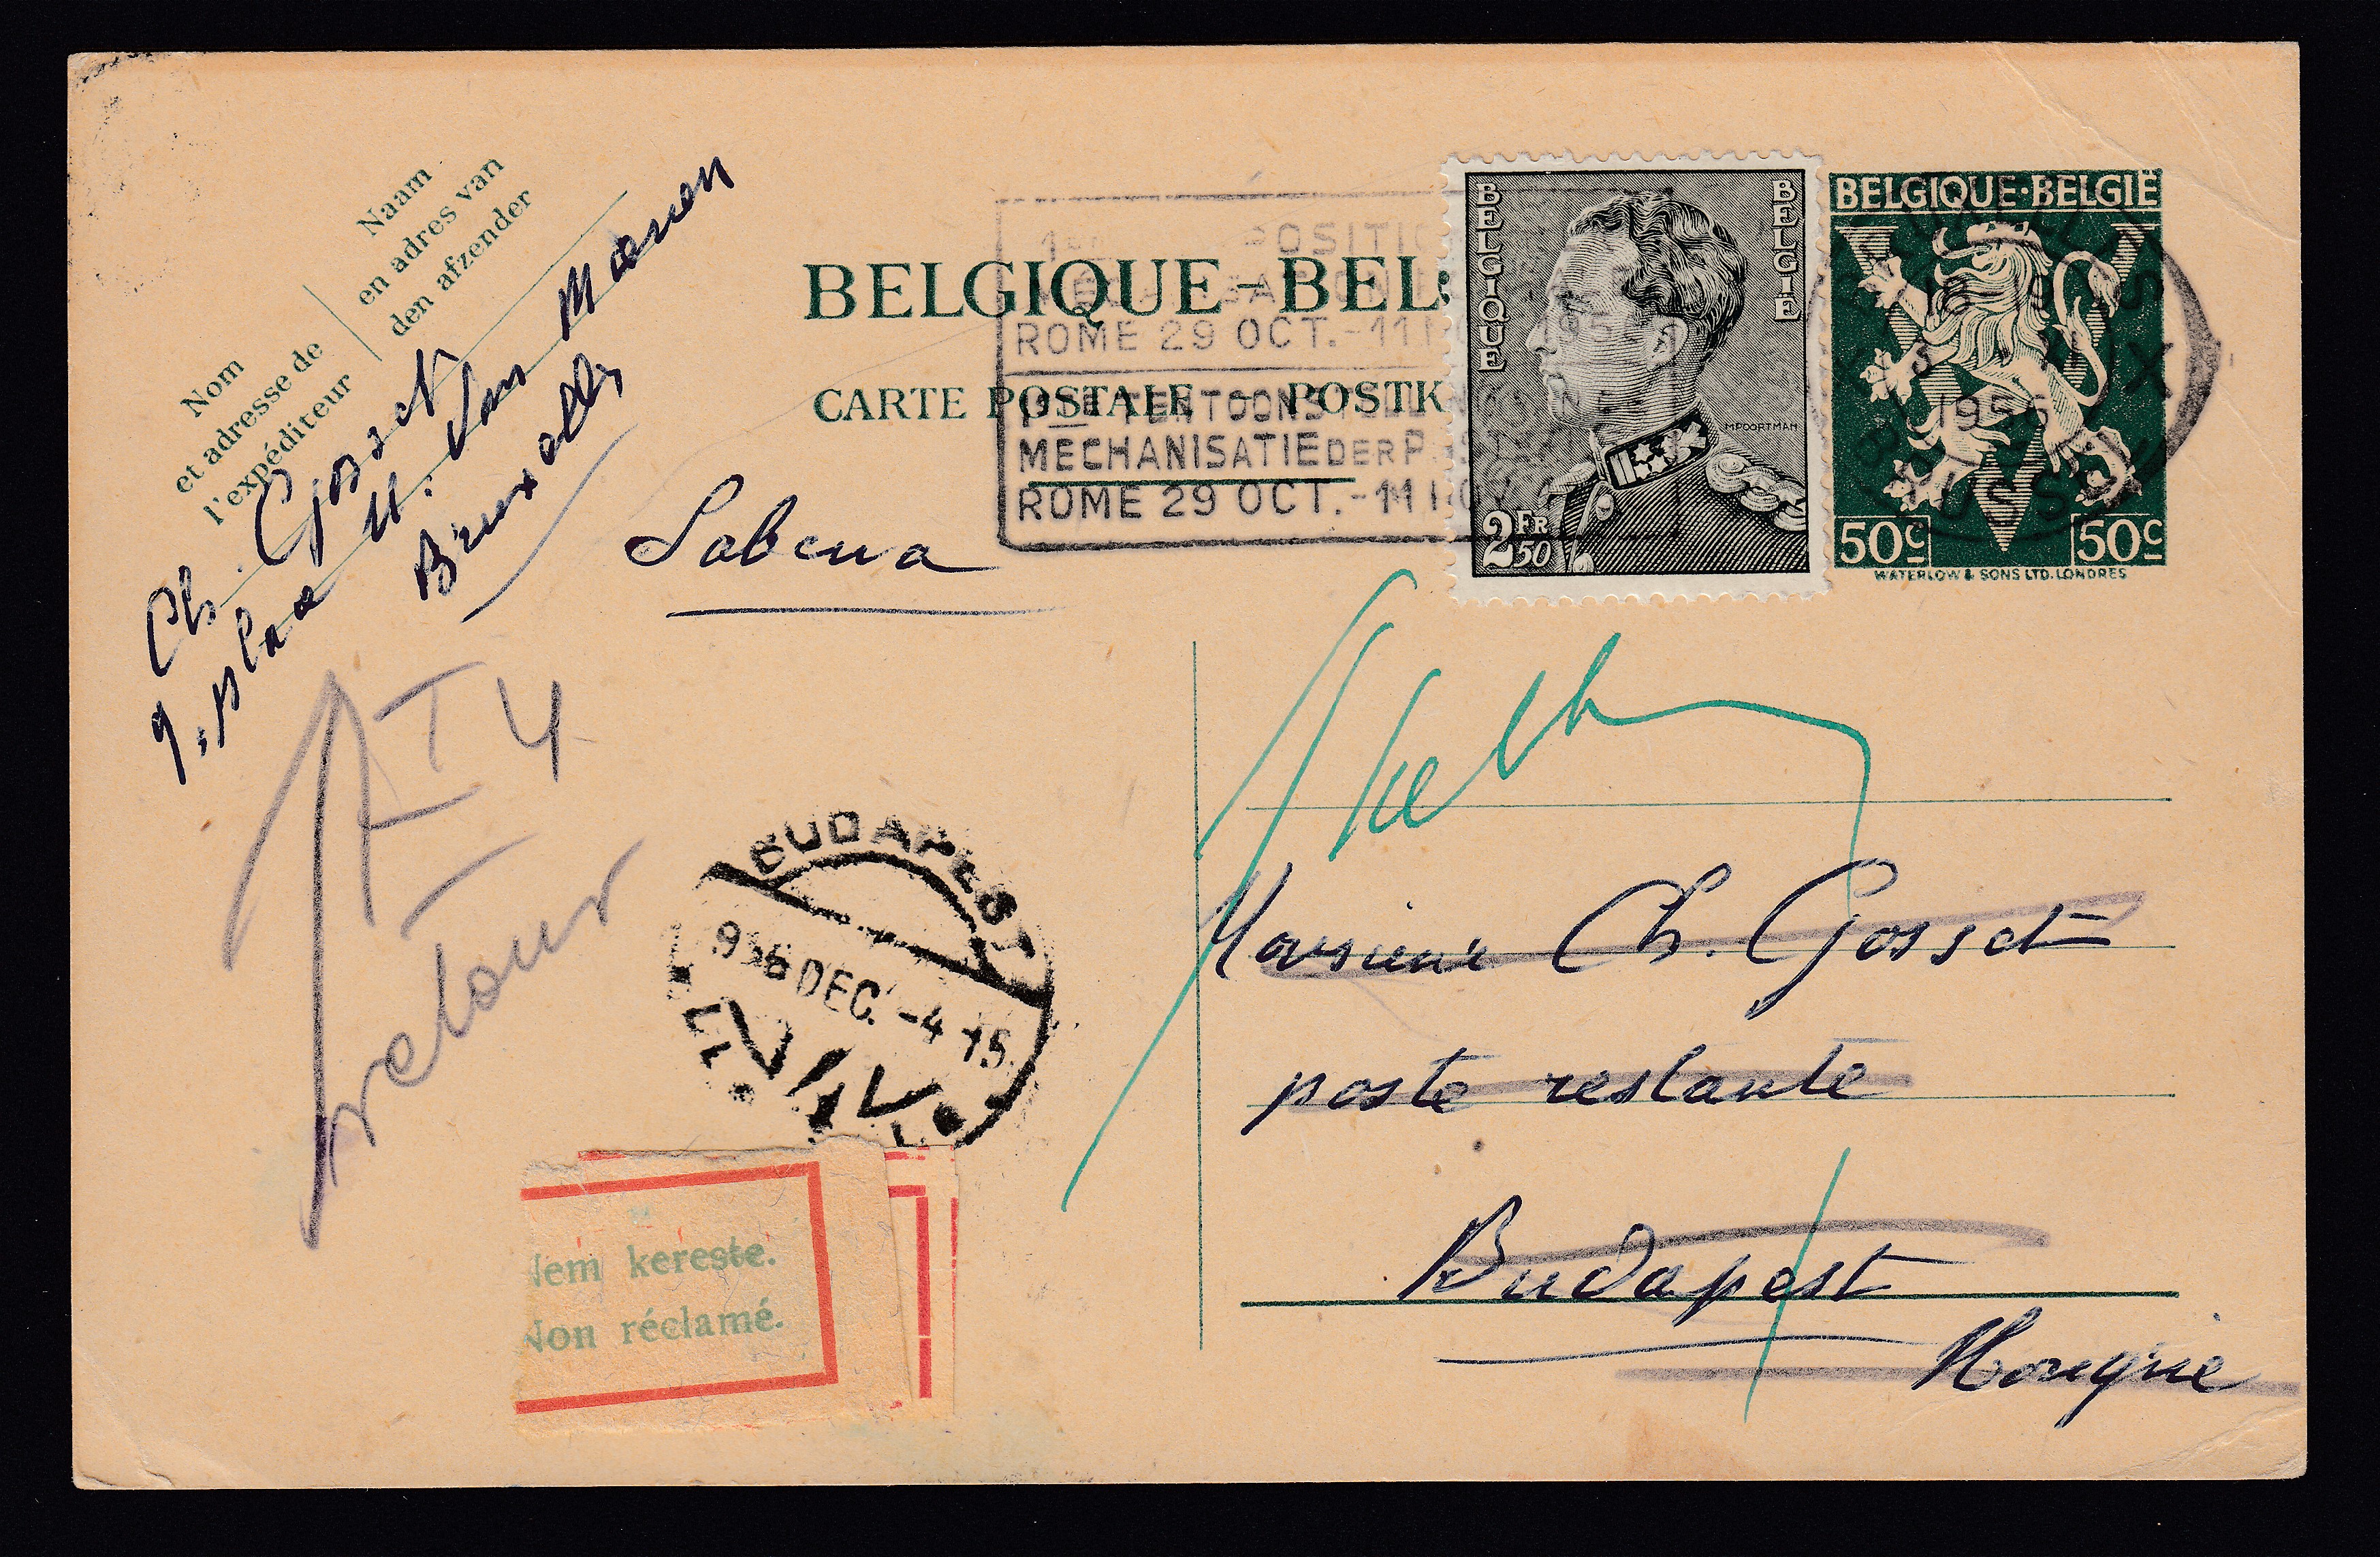 Naam
en adres van
den afzender
Nom
et adresse de
l'expéditeur
Ch. Gosset
9, place M. Van Meenen
Bruxelles
BELGIQUE - BEL
CARTE POSTALE - POSTK
POSITI
ROME 29 OCT. - 11 NO 195
1STE TENTOONST
MECHANISATIE DER POST
ROME 29 OCT. - 11 NOV
BELGIQUE
BELGIË
MPOORTMAN
2 FR 50
BELGIQUE·BELGIË
50c 50c
WATERLOW & SONS LTD. LONDRES
BRUXELLES X
18 9
1956
BRUSSEL X
Sabena
T 4
retour
BUDAPEST
956 DEC. -4 15
Monsieur Ch. Gosset
poste restante
Budapest
Hongrie
Nem kereste.
Non réclamé.